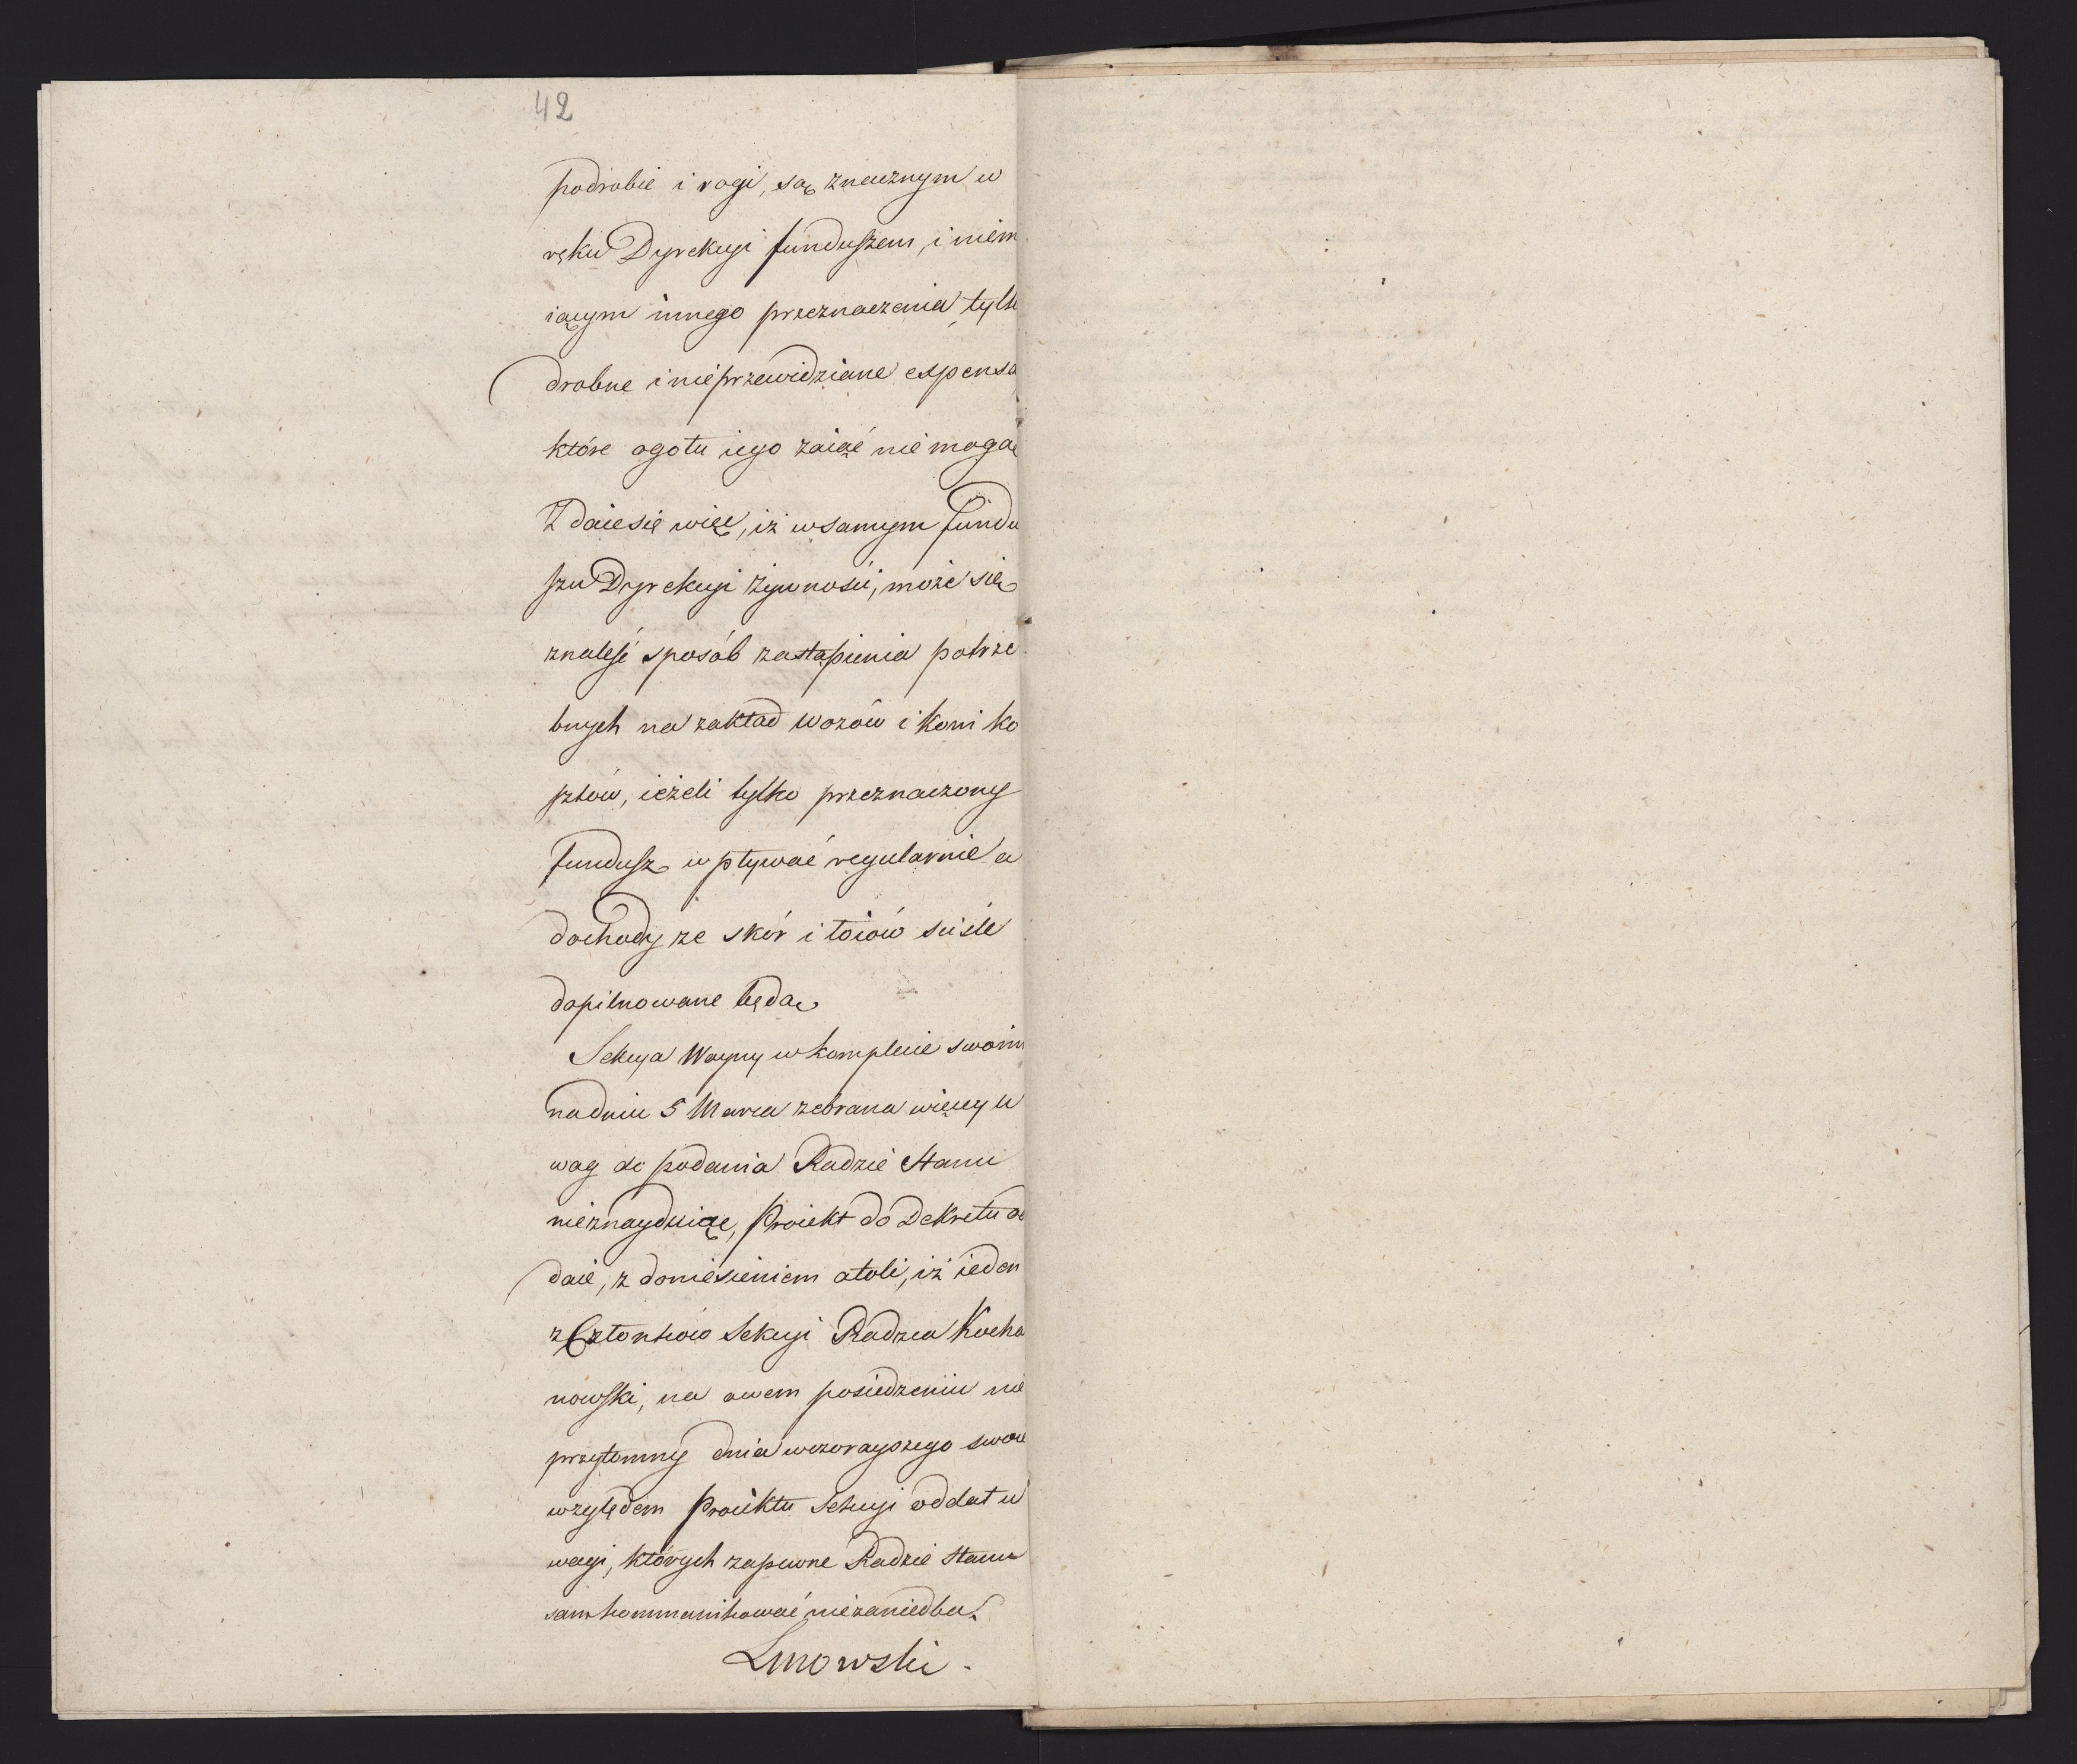 42
podrobie i rogi, są znacznym w
ręku Dyrekcyi funduszem, i niem
iącym innego przeznaczenia, tylk
drobne i nieprzewidziane expensa
które ogołu iego zaiąć nie mogą
Zdaie się więc, iż w samym fundu
szu Dyrekcyi żywnośći, może się
znaleść sposób zastąpienia potrze
bnych na zakład wozów i koni ko
sztów, ieżeli tylko przeznaczony
fundusz wpływać regularnie a
dochody ze skór i łoiów śćiśle
dopilnowane będą
Sekcya Woyny w komplecie swoim
na dniu 5 Marca zebrana więcey u
wag do podania Radzie Stanu
nieznayduiąc, Proiekt do Dekretu od
daie, z doniesieniem atoli, iż ieden
z Członków Sekcyi Radzca Kocha
nowski, na owem posiedzeniu nie
przytomny dnia wczorayszego swoie
względem Proiektu Sekcyi oddał u
wagi, których zapewne Radzie Stanu
sam kommunikować niezaniedba.
Linowski.